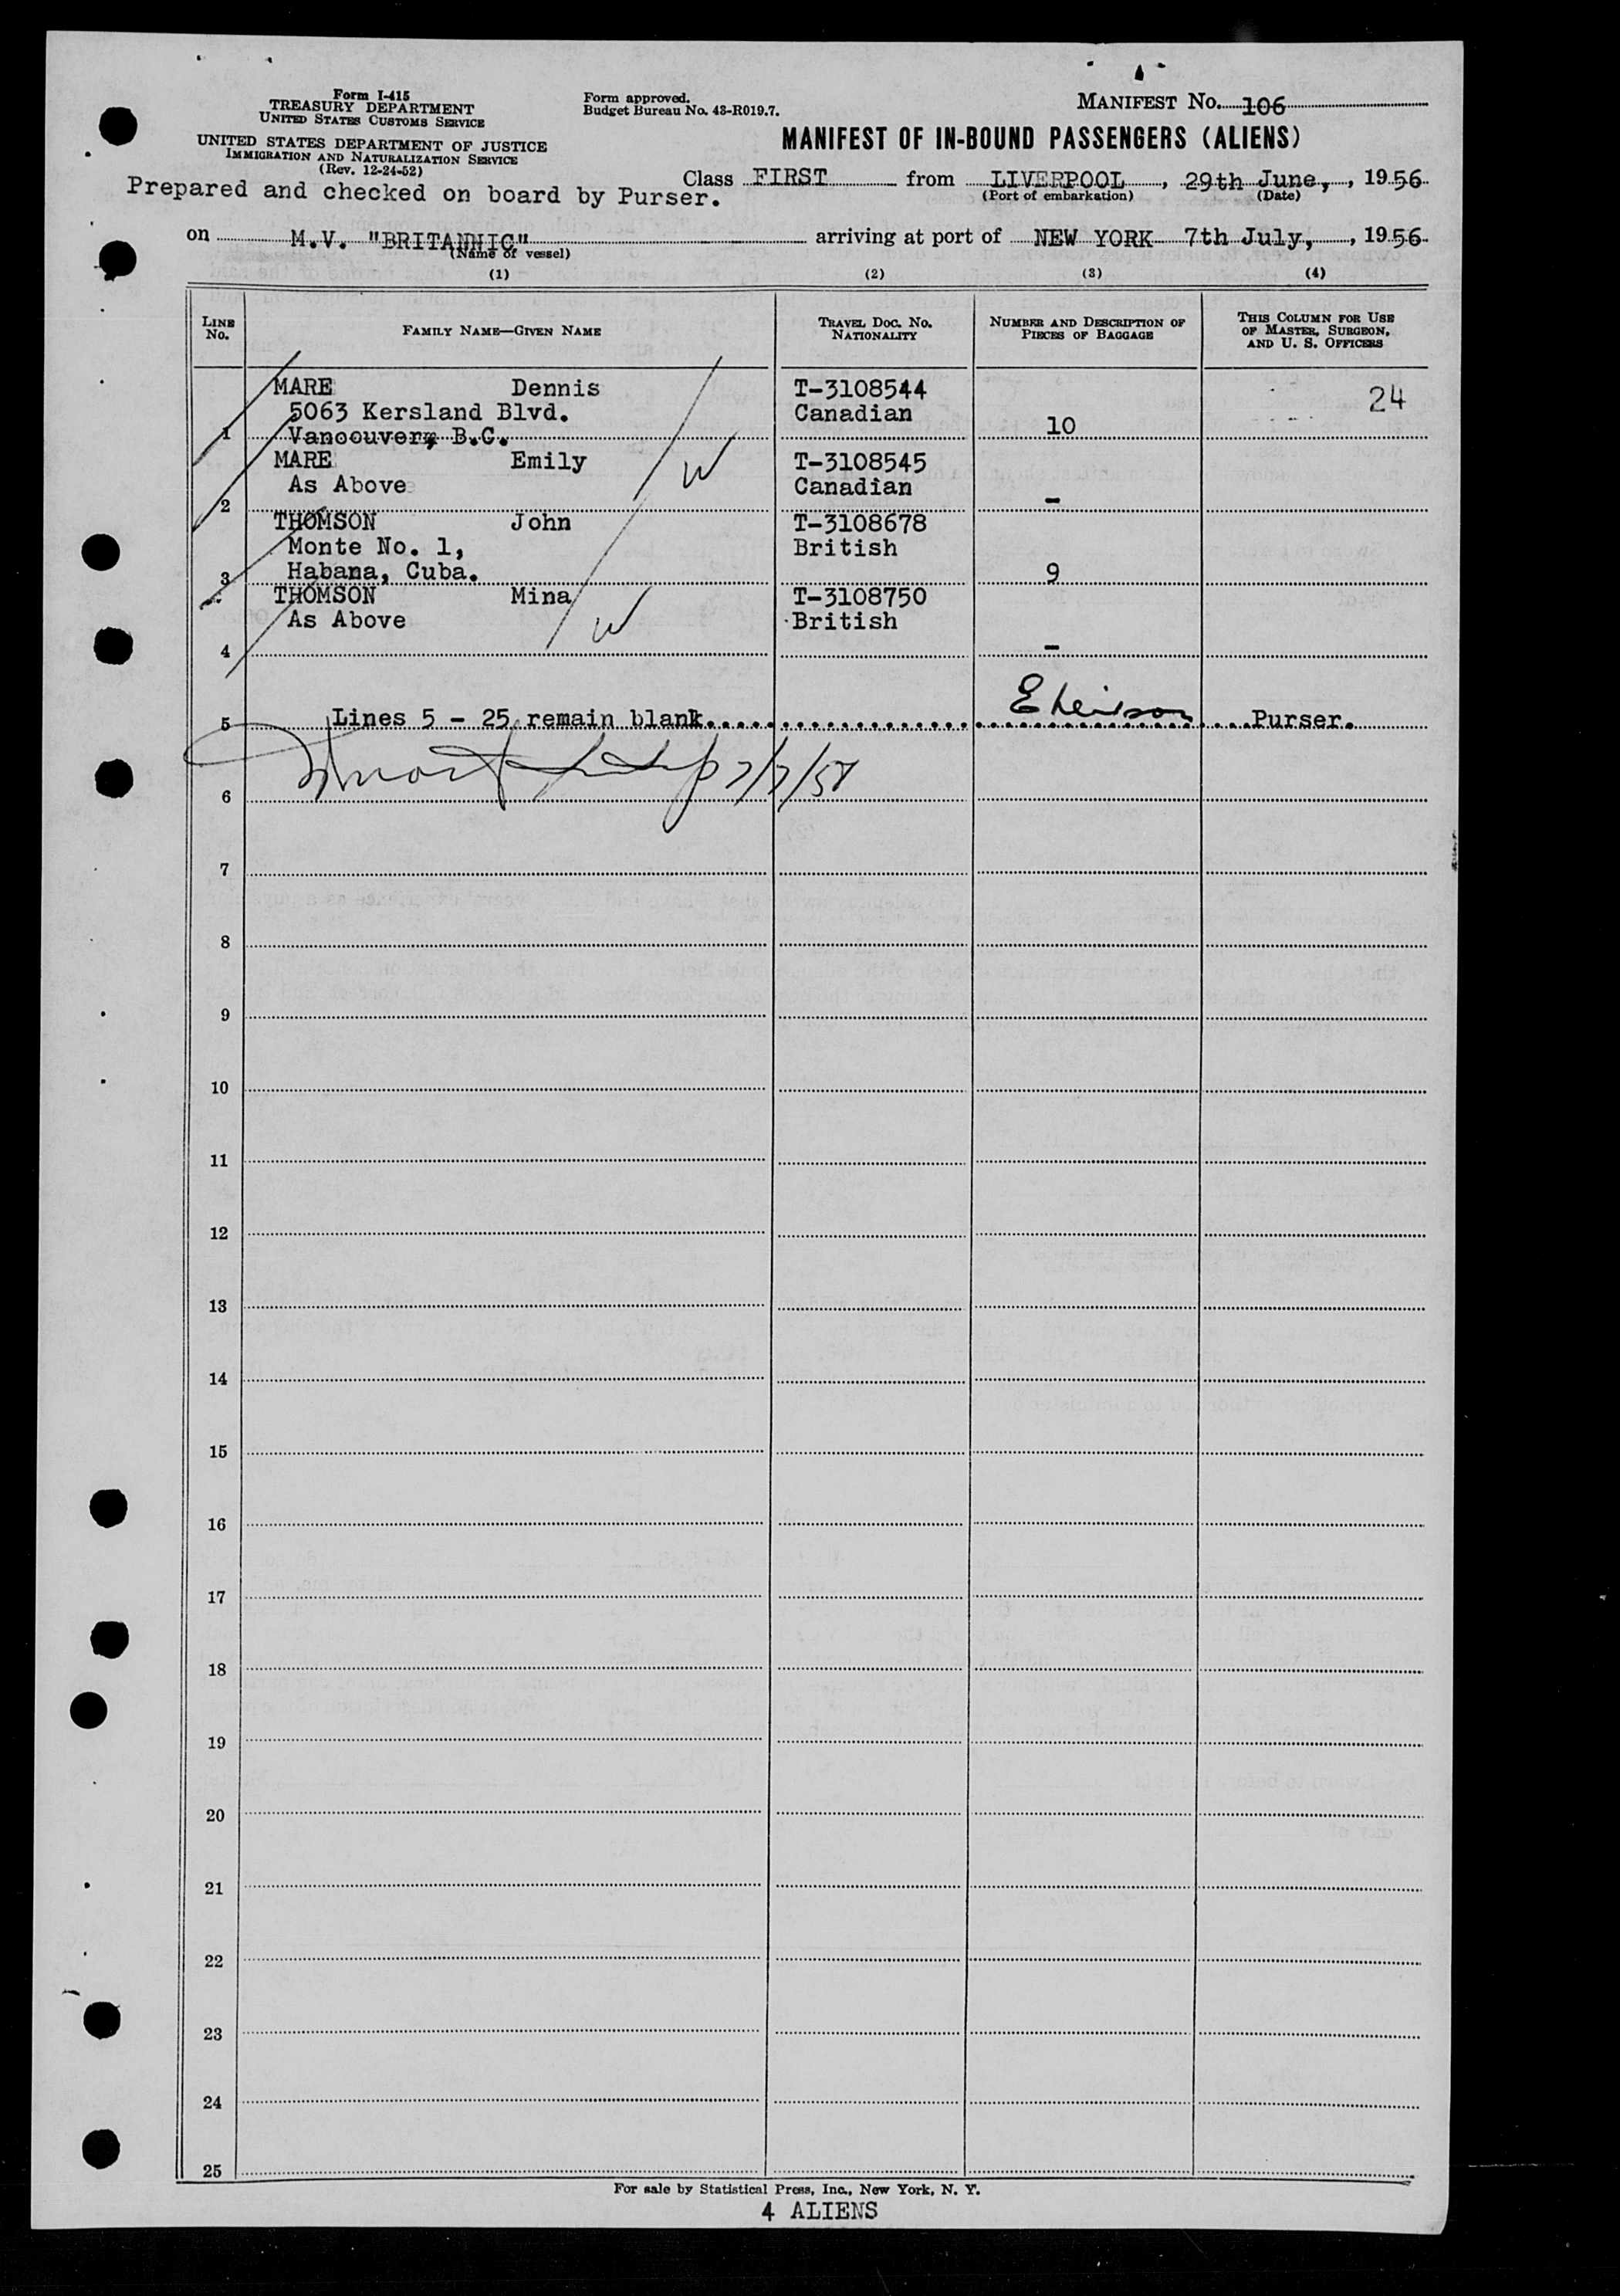 Form I-415
TREASURY DEPARTMENT
UNITED STATES CUSTOMS SERVICE
UNITED STATES DEPARTMENT OF JUSTICE
IMMIGRATION AND NATURALIZATION SERVICE
(Rev. 12-24-52)
Prepared and checked on board by Purser.
Form approved.
Budget Bureau No. 43-R019.7.
MANIFEST No. 106
MANIFEST OF IN-BOUND PASSENGERS (ALIENS)
Class FIRST from LIVERPOOL, 29th June, , 1956
(Port of embarkation) (Date)
on M.V. "BRITANNIC" arriving at port of NEW YORK 7th July, , 1956
(Name of vessel)
(1) (2) (3) (4)
LINE No. FAMILY NAME—GIVEN NAME TRAVEL DOC. NO. NATIONALITY NUMBER AND DESCRIPTION OF PIECES OF BAGGAGE THIS COLUMN FOR USE OF MASTER, SURGEON, AND U. S. OFFICERS
MARE Dennis T-3108544 24
5063 Kersland Blvd. Canadian
1 Vancouver, B.C. 10
MARE Emily T-3108545
As Above Canadian W
2 -
THOMSON John T-3108678
Monte No. 1, British
3 Habana, Cuba. 9
THOMSON Mina T-3108750
As Above British W
4 -
5 Lines 5 - 25 remain blank. Purser.
7/7/56
6
7
8
9
10
11
12
13
14
15
16
17
18
19
20
21
22
23
24
25
For sale by Statistical Press, Inc., New York, N. Y.
4 ALIENS